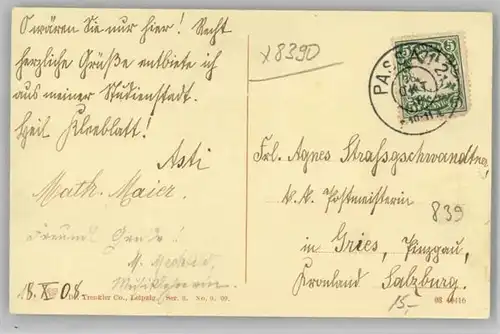 O wären Sie nur hier! Recht
herzliche Grüße entbiete ich
aus meiner Studienstadt.
Heil Kleeblatt!
Asti
Math. Maier.
18. X. 08.
Dr. Trenkler Co., Leipzig. Ser. 2. No. 9. 08.
x8390
PASSAU
5
Frl. Agnes Straßgschwandtner
k. k. Postmeisterin
839
in Gries, Pinzgau,
Kronland Salzburg.
15,-